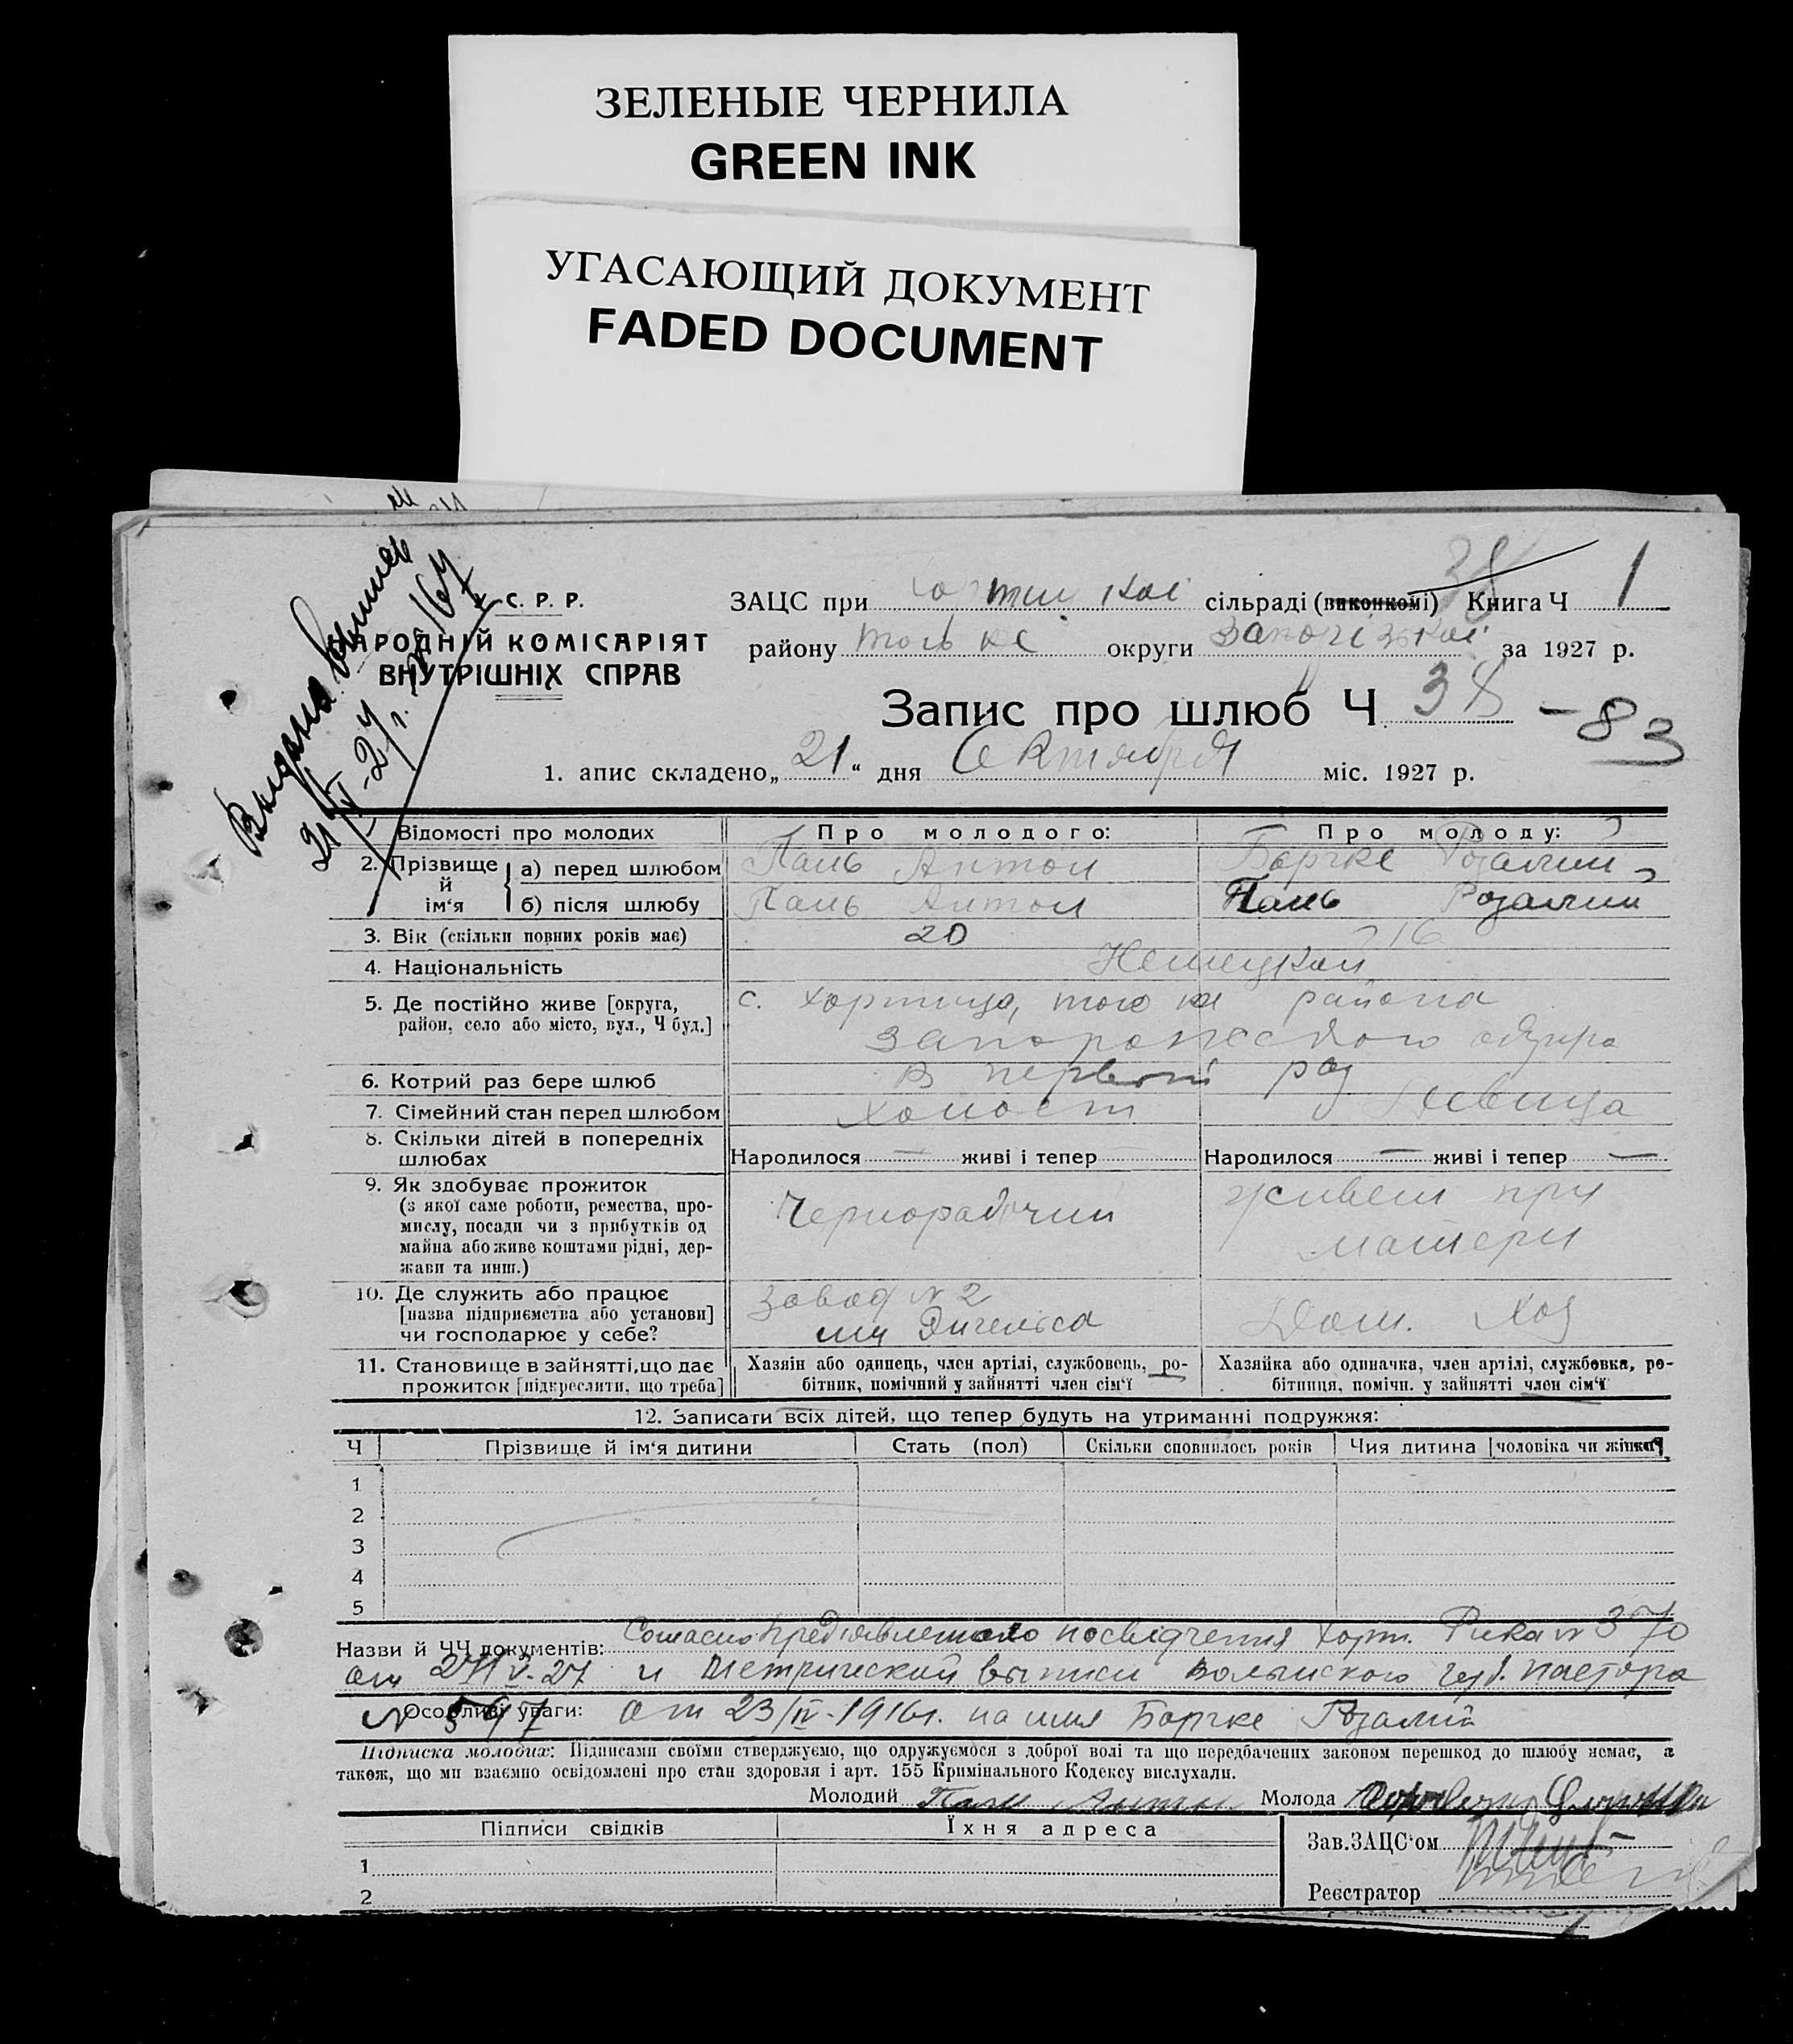 ЗЕЛЕНЫЕ ЧЕРНИЛА
GREEN INK
УГАСАЮЩИЙ ДОКУМЕНТ
FADED DOCUMENT
Выдана выпись
С. Р. Р.
НАРОДНІЙ КОМІСАРІЯТ
ВНУТРІШНІХ СПРАВ
ЗАЦС при Хортицькоі сільраді (виконкомі) Книга Ч 1
38
району того же округи Запорізькоі за 1927 р.
Запис про шлюб Ч 38 - 83
1. апис складено „21“ дня Октября міс. 1927 р.
Відомості про молодих Про молодого: Про молоду:
2. Прізвище й ім‘я
а) перед шлюбом Паль Антон Борчке Розалии
б) після шлюбу Паль Антон Паль Розалии
3. Вік (скільки повних років має) 20 16
4. Національність Немецкая
5. Де постійно живе [округа, район, село або місто, вул., Ч буд.] с. Хортица, того же района
Запорожского округа
6. Котрий раз бере шлюб В первый раз
7. Сімейний стан перед шлюбом холост девица
8. Скільки дітей в попередніх шлюбах Народилося — живі і тепер Народилося — живі і тепер —
9. Як здобуває прожиток
(з якої саме роботи, ремества, про-
мислу, посади чи з прибутків од
майна або живе коштами рідні, дер-
жави та инш.)
Чернорабочий
живет при
матери
10. Де служить або працює
[назва підприємства або установи]
чи господарює у себе?
завод № 2
им Энгельса
Дом. Хоз
11. Становище в зайнятті, що дає
прожиток [підкреслити, що треба]
Хазяін або одинець, член артілі, службовець, ро-
бітник, помічний у зайнятті член сім‘ї
Хазяйка або одиначка, член артілі, службовка, ро-
бітниця, помічн. у зайнятті член сім‘ї
12. Записати всіх дітей, що тепер будуть на утриманні подружжя:
Ч Прізвище й ім‘я дитини Стать (пол) Скільки сповнилось років Чия дитина [чоловіка чи жінки]
1
2
3
4
5
Назви й ЧЧ документів: Согласно предъявленного посвідчення Хорт. Рика № 370
от 27. и Метрический выписи Волынского губ. пастора
№ 597 Особливі уваги: от 23/IV-1916г. на имя Борчке Розалии
Підписка молодих: Підписами своїми стверджуємо, що одружуємося з доброї волі та що передбачених законом перешкод до шлюбу немає, а
також, що ми взаємно освідомлені про стан здоровля і арт. 155 Кримінального Кодексу вислухали.
Молодий Паль Антон Молода
Підписи свідків Їхня адреса Зав.ЗАЦС‘ом
1
2 Реєстратор